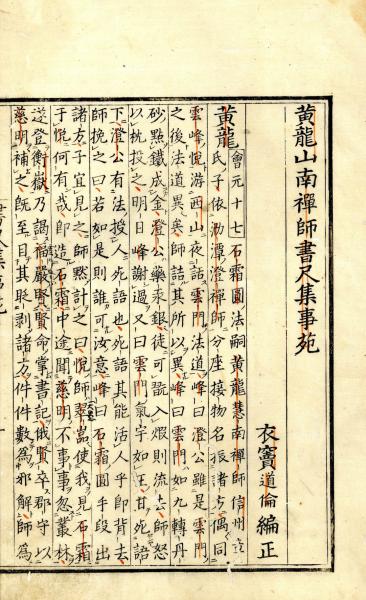 黃龍山南禪師書尺集事苑
衣寶道倫編正
黃龍會元十七石霜圓法嗣黃龍慧南禪師信州
氏子依泐潭澄禪師分座接物名振諸方偶同
雲峰悅游西山夜話雲門法道峰曰澄公雖是雲門
之後法道異矣師詰其所以異峰曰雲門如九轉丹
砂點鐵成金澄公藥汞銀徒可翫入煆則流去師怒
以枕投之明日峰謝過又曰雲門氣宇如王甘死語
下澄公有法授人死語也死語其能活人乎即背去
師挽之曰若如是則誰可汝意峰曰石霜圓手段出
諸方子宜見之師默計之曰悅師翠嵓使我見石霜
于悅何有哉即造石霜中途聞慈明不事事忽叢林
遂登衡嶽乃謁福嚴賢賢命掌書記俄賢卒郡守以
慈明補之既至目其貶剝諸方件件數為邪解師為